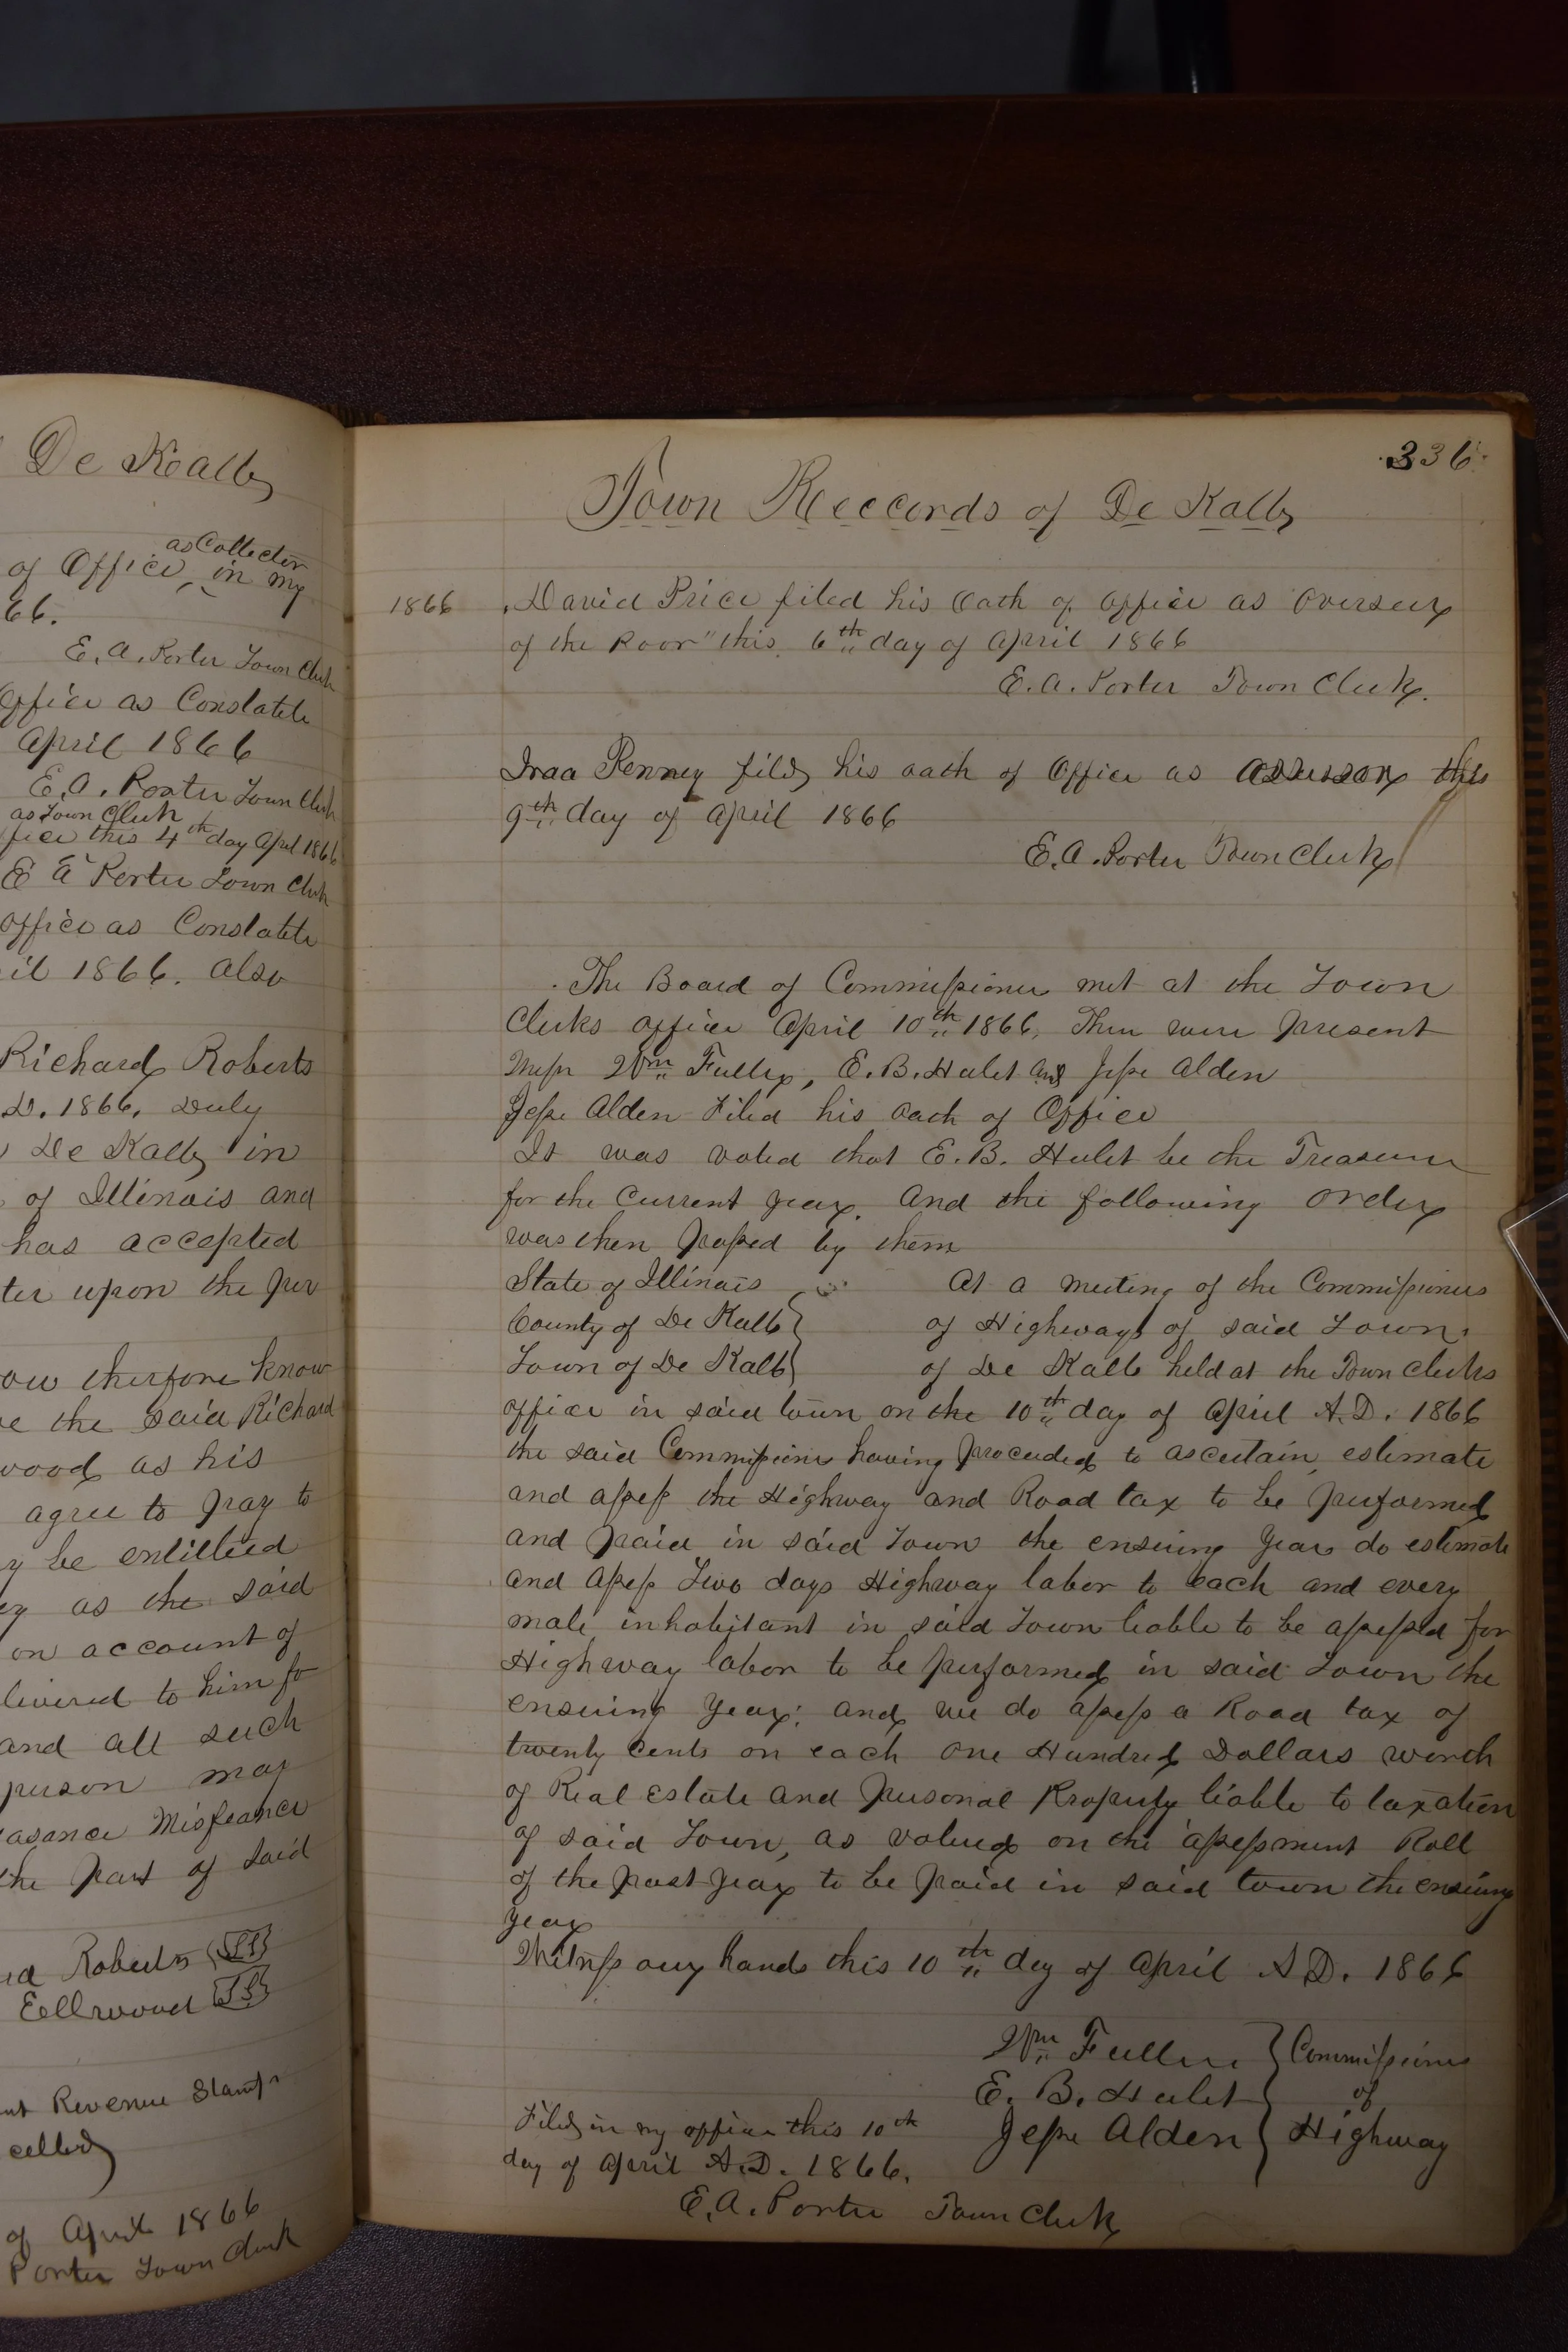 De Koalb
as Collector
of Office, in my
66.
E. A. Porter Town Clerk
Office as Conslable
April 1866
E. A. Porter Town Clerk
as Town Clerk
fice this 4th day Aprl 1866
E A Porter Town Clerk
office as Conslable
il 1866. also
Richard Roberts
D. 1866. Duly
De Kalb in
of Illinois and
has accepted
ter upon the per
ow therfore know
e the said Richard
wood as his
agree to pay to
y be entitled
as the said
on account of
livered to him fo
and all such
person may
asance Misfeance
the part of said
Roberts
Eellwood
nt Revenue Stamp
celled
of April 1866
Porter Town Clerk
336
Town Reccords of De Kalb
1866 David Price filed his Oath of office as Overseer
of the Poor" this 6th day of April 1866
E. A. Porter Town Clerk.
Iraa Penney filed his oath of Office as assessor this
9th day of April 1866
E. A. Porter Town Clerk
The Board of Commissioner met at the Town
Clerks office April 10th 1866, Then were present
Messr Wm Fuller, E. B. Hulet and Jesse Alden
Jesse Alden Filed his oath of Office
It was voted that E. B. Hulet be the Treasurer
for the Current year. And the following order
was then passed by them
State of Illinois At a meeting of the Commissioners
County of De Kalb of Highways of said Town
Town of De Kalb of De Kalb held at the Town Clerks
office in said town on the 10th day of April A.D. 1866
the said Commissioners having proceeded to ascertain, estimate
and assess the Highway and Road tax to be performed
and paid in said Town the ensuing year do estimate
and assess Two days Highway labor to each and every
male inhabitant in said Town liable to be assessed for
Highway labor to be performed in said Town the
ensuing year; and we do assess a Road tax of
twenty cents on each one Hundred Dollars worth
of Real estate and personal Property liable to taxation
of said Town, as valued on the assessment Roll
of the past year to be paid in said town the ensuing
year
Witness our hands this 10th day of April A.D. 1866
Wm Fuller Commissioners
E. B. Hulet of
Jesse Alden Highway
Filed in my office this 10th
day of April A.D. 1866.
E. A. Porter Town Clerk